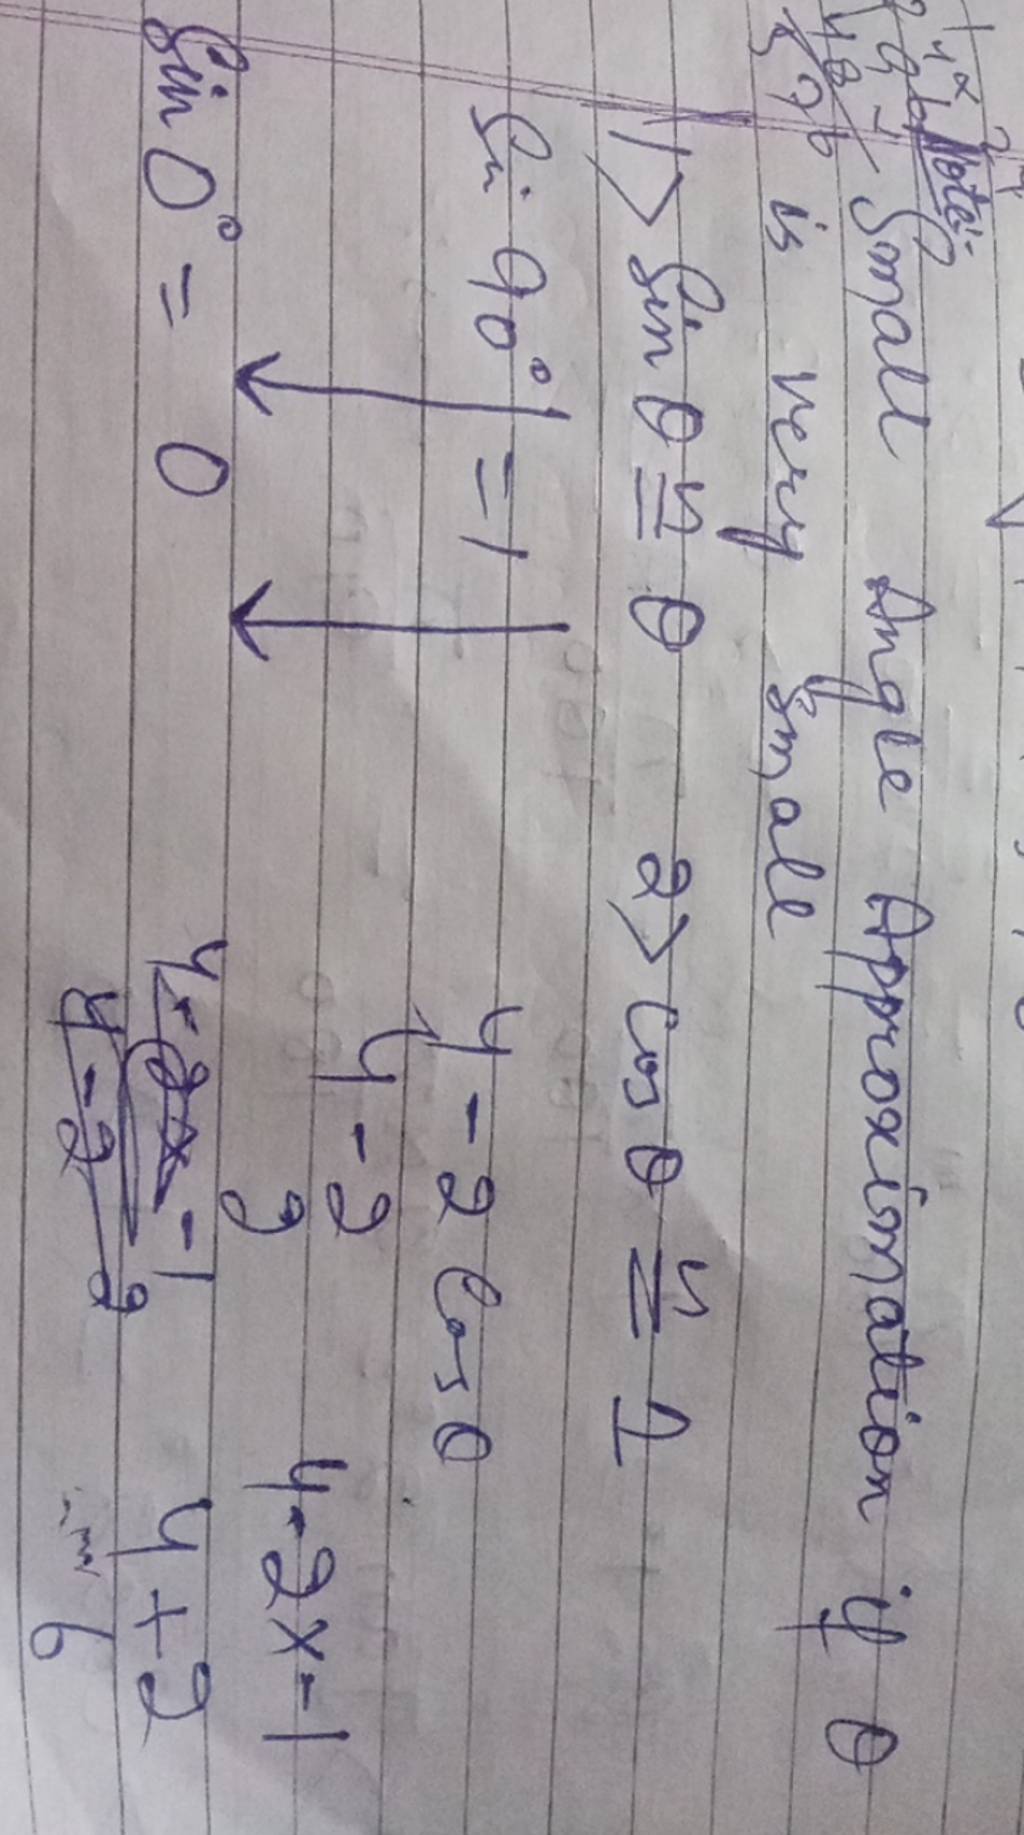 Note:-
Small Angle Approximation if θ
is very small
1> Sin θ ≃ θ 2> Cos θ ≃ 1
Sin 90° = 1
4 - 2 Cos θ
4 - 2
2
4 - 2x - 1
Sin 0° = 0
4 - 2x - 1
4 + 2
4 - 2
6